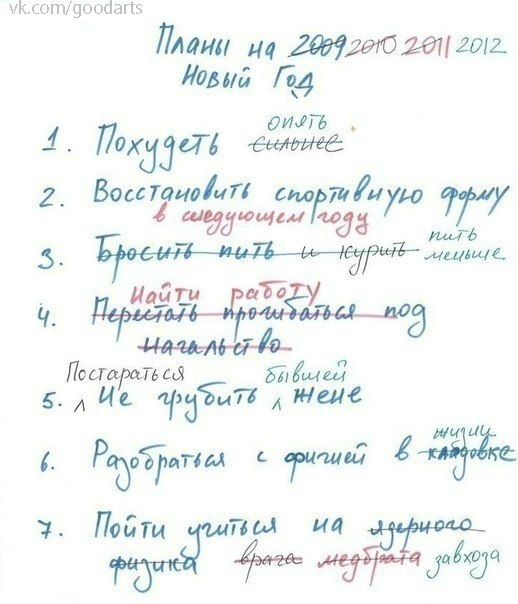 vk.com/goodarts
Планы на 2009 2010 2011 2012
Новый Год
опять
1. Похудеть сильнее
2. Восстановить спортивную форму
в следующем году
3. Бросить пить и курить пить меньше
Найти работу
4. Перестать прогибаться под
начальство
Постараться бывшей
5. Не грубить жене
жизни
6. Разобраться с фигнёй в кладовке
7. Пойти учиться на ядерного
физика врача медбрата завхоза